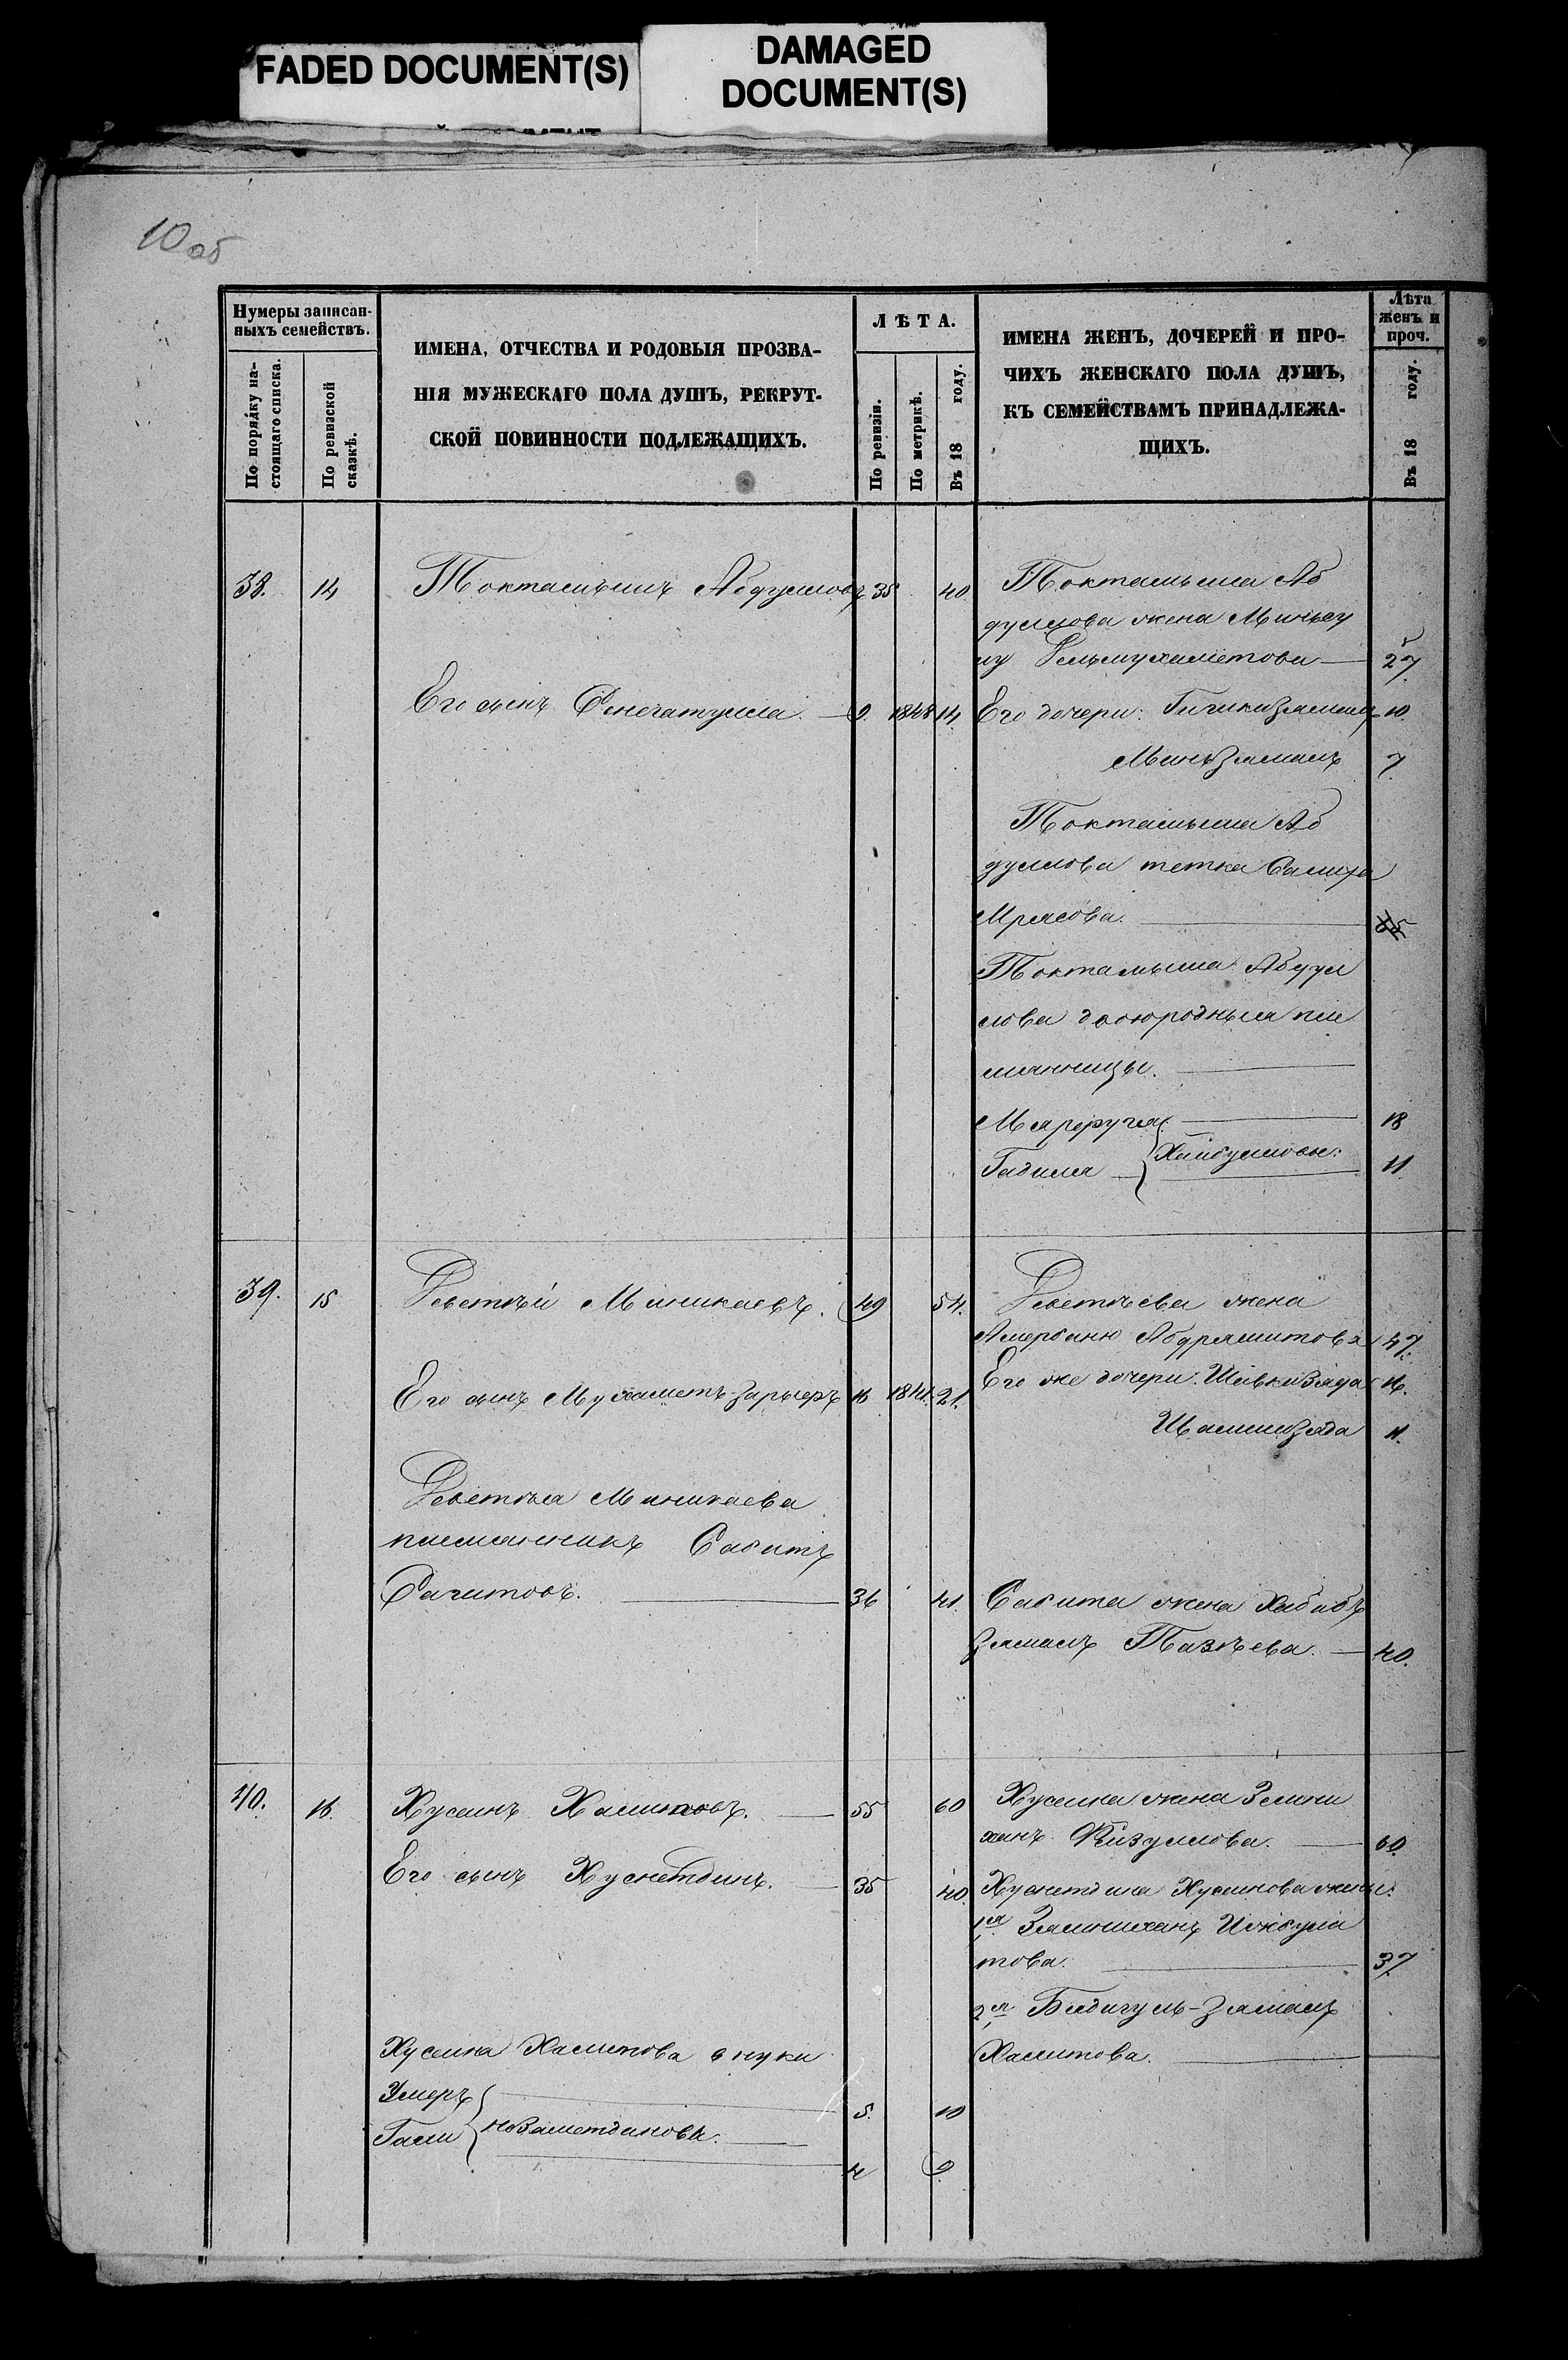 FADED DOCUMENT(S)
DAMAGED
DOCUMENT(S)
10об
Нумеры записан-
ныхъ семействъ.
По порядку на-
стоящаго списка.
По ревизской
сказкѣ.
ИМЕНА, ОТЧЕСТВА И РОДОВЫЯ ПРОЗВА-
НІЯ МУЖЕСКАГО ПОЛА ДУШЪ, РЕКРУТ-
СКОЙ ПОВИННОСТИ ПОДЛЕЖАЩИХЪ.
ЛѢТА.
По ревизіи.
По метрикѣ.
Въ 18 году.
ИМЕНА ЖЕНЪ, ДОЧЕРЕЙ И ПРО-
ЧИХЪ ЖЕНСКАГО ПОЛА ДУШЪ,
КЪ СЕМЕЙСТВАМЪ ПРИНАДЛЕЖА-
ЩИХЪ.
Лѣта
женъ и
проч.
Въ 18 году.
38. 14 Токтамышъ Абдулловъ 35 40.
Токтамыша Аб
дуллова жена Миньсу
лу Гельмухаметова — 27.
Его сынъ — 9. 1848 14.
Его дочери: 10.
МиньЗямалъ 7.
Токтамыша Аб
дуллова тетка Салиха
Мрясова.
Токтамыша Абдул
лова двоюродныя пле
мянницы.
Марфуга 18
Гадиля } Хайбулловы: 11
39. 15 Миникаевъ. 49 54.
жена
Абдряшитова 47.
Его сынъ Мухаметъ 16 1841. 21.
Его же дочери: 16.
11.
Миникаева
племянникъ Сабитъ
Сагитовъ. 36 41.
Сабита жена Хабибъ
Зямалъ Тазѣева. — 40.
40. 16. Хусаинъ Халитовъ. — 55 60
Хусаина жена
ханъ. — 60.
Его сынъ Хуснетдинъ. — 35 40.
Хуснетдина Хусаинова жены:
1я
това. 37
2я Бадигуль-Зямалъ
Халитова.
Хусаина Халитова внуки
Умеръ 5. 10
Гали } Незаметдиновы. 4 9.